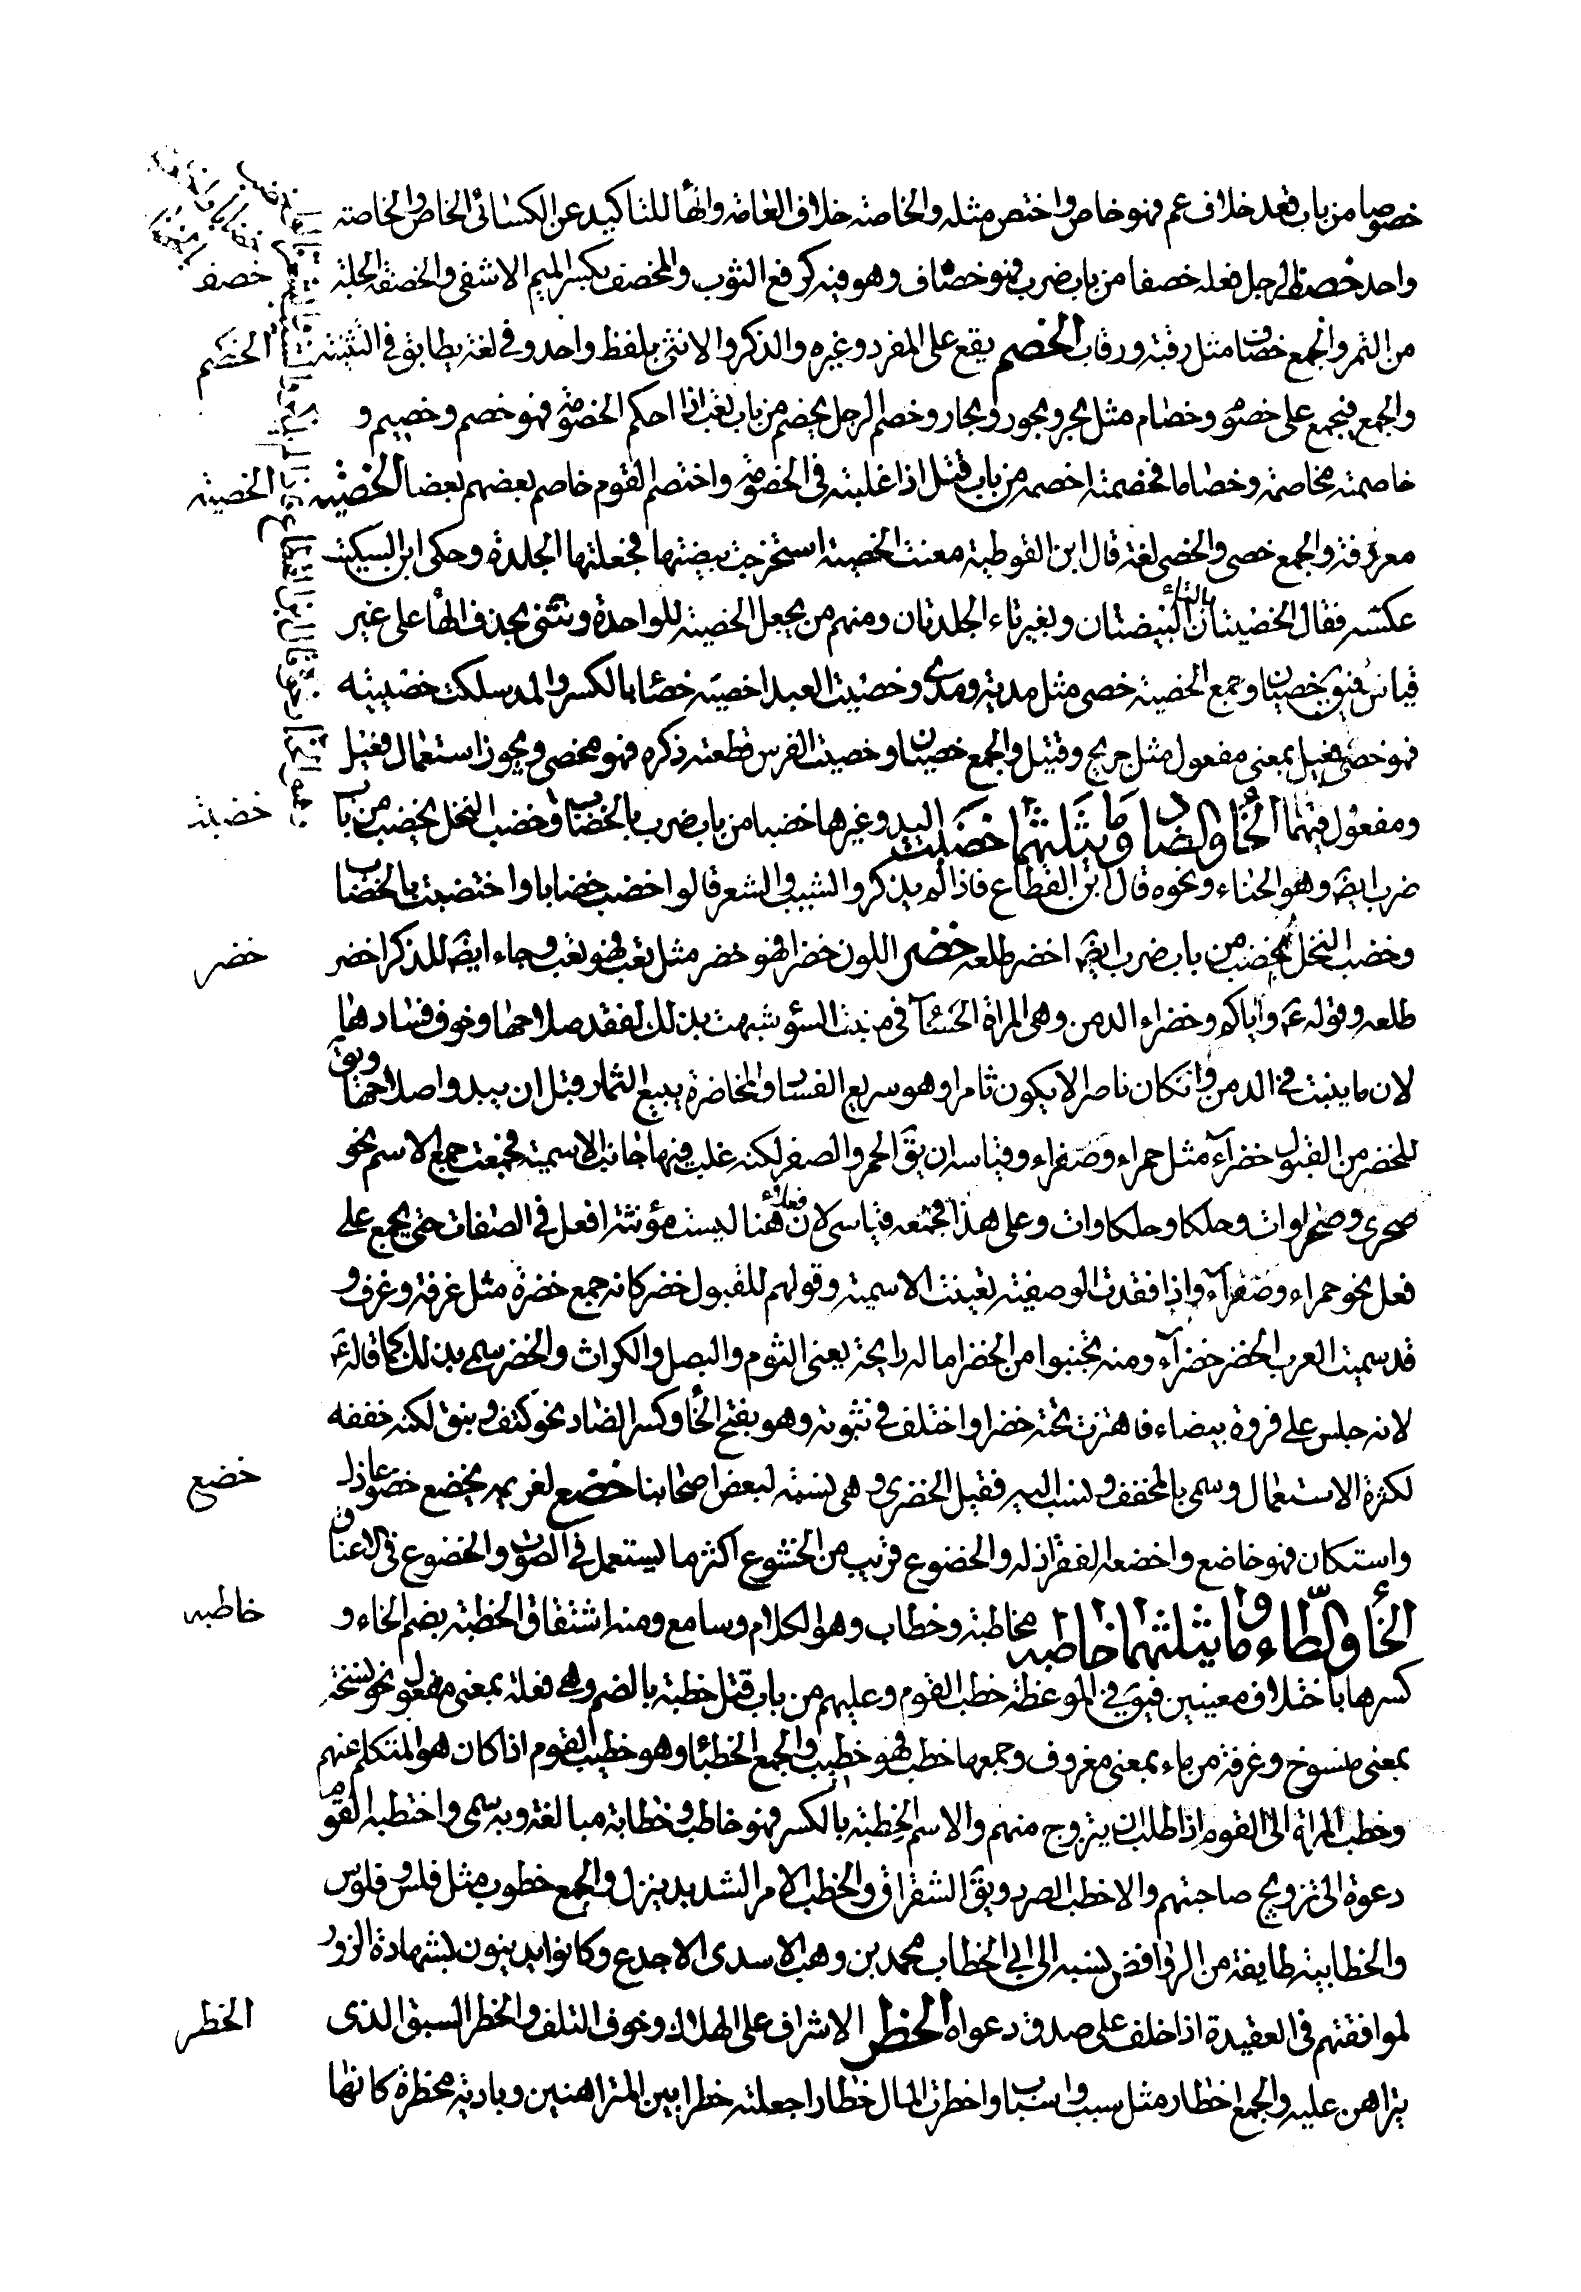 خصوصا من باب قعد خلاف عم فهو خاص واختص مثله والخاصة خلاف العامة والهأ للتاكيد عن الكسائى الخاص والخاصة
واحد خصف الرجل نعله خصفا من باب ضرب فهو خصاف وهو فيه كرقع الثوب والمخصف بكسر الميم الاشفى والخصفة الجلة
من التمر والجمع خصاف مثل رقبة ورقاب الخصم يقع على المفرد وغيره والذكر والانثى بلفظ واحد وفي لغة يطابق في التثنية
والجمع فيجمع على خصوم وخصام مثل بحر وبحور وبحار وخصم الرجل يخصم من باب تعب اذا احكم الخصومة فهو خصم وخصيم و
خاصمته مخاصمة وخصاما فخصمته اخصمه من باب قتل اذا غلبته في الخصومة واختصم القوم خاصم بعضهم بعضا الخصية
معروفة والجمع خصى والخصى لغة قال ابن القوطية معنت الخصية استخرجت بيضتها فجعلتها الجلدة وحكى ابن السكيت
عكسه فقال الخصيتان بالتاء البيضتان وبغير تاء الجلدتان ومنهم من يجعل الخصية للواحدة وتثنى بحذف الهأ على غير
قياس فيق خصيان وجمع الخصية خصى مثل مدية ومدى وخصيت العبد اخصيه خصا بالكسر والمد سلكت خصييه
فهو خصى فعيل بمعنى مفعول مثل جريح وقتيل والجمع خصيان وخصيت الفرس قطعت ذكره فهو مخصى ويجوز استعمال فعيل
ومفعول فيهما الخأ والضاد وما يثلثهما خضبت اليد وغيرها خضبا من باب ضرب بالخضاب وخضب النخل يخضب من باب
ضرب ايضا وهو الحناء ونحوه قال ابن القطاع فاذا لم يذكروا الشيب والشعر قالوا خضب خضابا واختضبت بالخضاب
وخضب النخل يخضب من باب ضرب ايضا اخضر طلعه خضر اللون خضرا فهو خضر مثل تعب فهو تعب وجاء ايضا للذكر اخضر
طلعه وقوله عم واياكم وخضراء الدمن وهى المراة الحسنآ في منبت السؤ شبهت بذلك لفقد صلاحها وخوف فسادها
لان ما ينبت في الدمن وان كان ناضرا لا يكون ثامرا وهو سريع الفساد والمخاضرة بيع الثمار قبل ان يبدو اصلاحها ويق
للخضر من القبول خضرآء مثل حمراء وصفراء وقياسه ان يق الحمر والصفر لكنه غلب فيها جانب الاسمية فجمعت جمع الاسم نحو
صحرى وصحراوات وحلكا وحلكاوات وعلى هذا فجمعه قياسى لان فعلاء هنا ليست مؤنثة افعل في الصفات حتى يجمع على
فعل نحو حمراء وصفرآء واذا فقدت الوصفية تعينت الاسمية وقولهم للقبول خضر كانه جمع خضرة مثل غرفة وغرف و
قد سميت العرب الخضر خضرآء ومنه تجنبوا من الخضر ما له رايحة يعنى الثوم والبصل والكراث والخضر سمى بذلك كما قاله عم
لانه جلس على فروة بيضاء فاهتزت تحته خضرا واختلف في نبوته وهو بفتح الخأ وكسر الضاد نحو كتف ونبق لكنه خففه
لكثرة الاستعمال وسمى بالمخفف ونسب اليه فقيل الخضرى وهى نسبة لبعض اصحابنا خضع لغريمه يخضع خضوعا ذل
واستكان فهو خاضع واخضعه الفقر اذله والخضوع قريب من الخشوع اكثر ما يستعمل في الصوت والخضوع في الاعناق
الخأ والطاء وما يثلثهما خاطبه مخاطبة وخطاب وهو الكلام وسامع ومنه اشتقاق الخطبة بضم الخاء و
كسرها باختلاف معينين فيق في الموعظة خطب القوم وعليهم من باب قتل خطبة بالضم وهى فعلة بمعنى مفعول نحو نسخة
بمعنى منسوخ وغرفة من ماء بمعنى مغروف وجمعها خطب فهو خطيب والجمع الخطبا وهو خطيب القوم اذا كان هو المتكلم عنهم
وخطب المراة الى القوم اذا طلب ان يتزوج منهم والاسم الخطبة بالكسر فهو خاطب وخطابة مبالغة وبه سمى واختطبه القوم
دعوة الى تزويج صاحبتهم والاخطب الصرد ويق الشقراق والخطب الامر الشديد ينزل والجمع خطوب مثل فلس وفلوس
والخطابية طايفة من الروافض نسبة الى ابى الخطاب محمد بن وهب الاسدى الاجدع وكانوا يدينون بشهادة الزور
لموافقتهم في العقيدة اذا حلف على صدق دعواه الخطر الاشراف على الهلاك وخوف التلف والخطر السبق الذى
يتراهن عليه والجمع اخطار مثل سبب واسباب واخطرت المال اخطارا جعلته خطرا بين المتراهنين وبادية مخطرة كانها
خصف
الخصم
الخصية
خضبت
خضر
خضع
خاطبه
الخطر